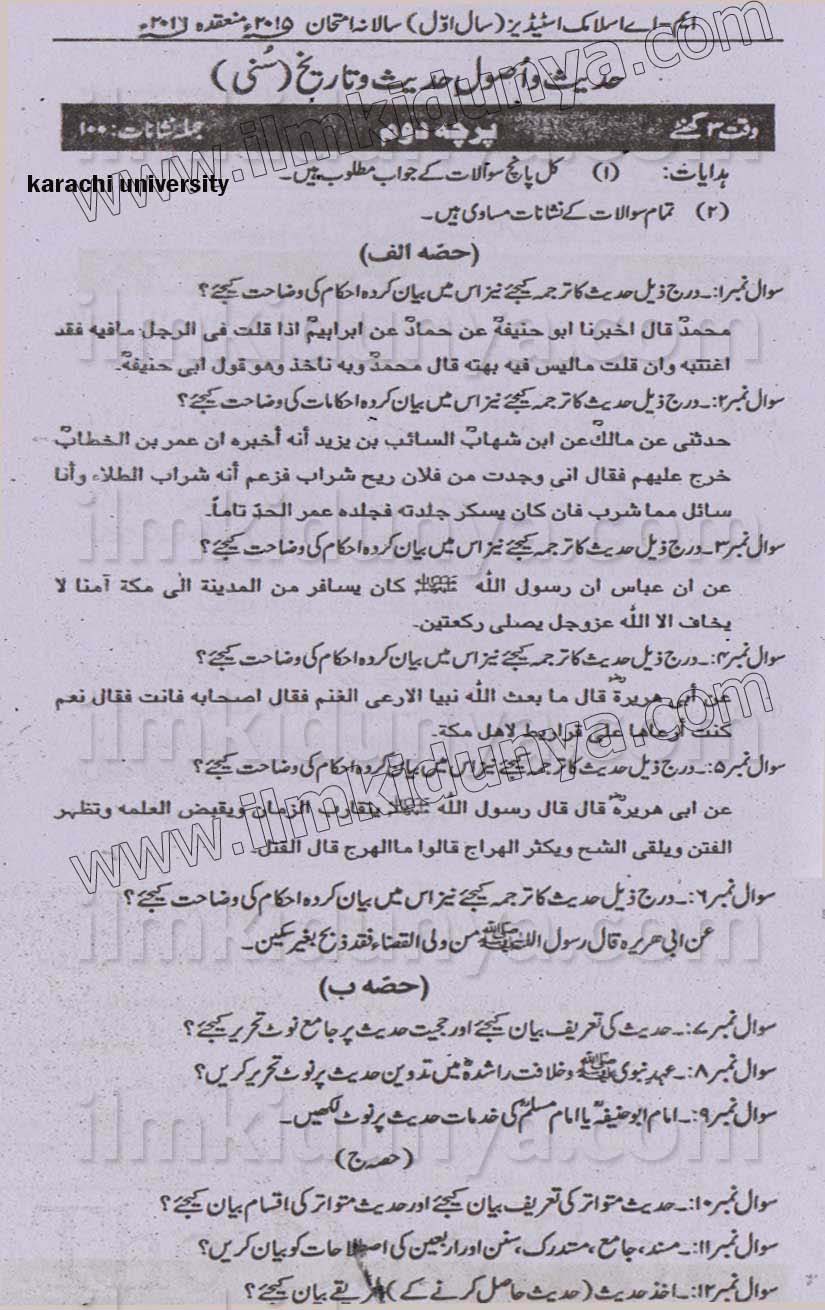 ایم-اے اسلامک اسٹیڈیز (سال اوّل) سالانہ امتحان ۲۰۱۵ء منعقدہ ۲۰۱۶ء
حدیث و اُصول حدیث و تاریخ (سُنی)
وقت ۳ گھنٹے پرچہ دوم جملہ نشانات: ۱۰۰
karachi university
ہدایات: (۱) کل پانچ سوالات کے جواب مطلوب ہیں۔
(۲) تمام سوالات کے نشانات مساوی ہیں۔
(حصّہ الف)
سوال نمبر۱:۔ درج ذیل حدیث کا ترجمہ کیجئے نیز اس میں بیان کردہ احکام کی وضاحت کیجئے؟
محمدؒ قال اخبرنا ابو حنیفةؒ عن حمادؒ عن ابراهیمؒ اذا قلت فی الرجل مافیه فقد
اغتبته وان قلت مالیس فیه بهته قال محمدؒ وبه ناخذ وهو قول ابی حنیفةؒ۔
سوال نمبر۲:۔ درج ذیل حدیث کا ترجمہ کیجئے نیز اس میں بیان کردہ احکامات کی وضاحت کیجئے؟
حدثنی عن مالكؒ عن ابن شهابؒ السائب بن یزید أنه أخبره ان عمر بن الخطابؓ
خرج علیهم فقال انی وجدت من فلان ریح شراب فزعم أنه شراب الطلاء وأنا
سائل مما شرب فان کان یسکر جلدته فجلده عمر الحدّ تاماً۔
سوال نمبر۳:۔ درج ذیل حدیث کا ترجمہ کیجئے نیز اس میں بیان کردہ احکام کی وضاحت کیجئے؟
عن ان عباس ان رسول الله ﷺ کان یسافر من المدینة الی مکة آمنا لا
یخاف الا الله عزوجل یصلی رکعتین۔
سوال نمبر۴:۔ درج ذیل حدیث کا ترجمہ کیجئے نیز اس میں بیان کردہ احکام کی وضاحت کیجئے؟
عن أبی هریرةؓ قال ما بعث الله نبیا الارعی الغنم فقال اصحابه فانت فقال نعم
کنت أرعاها علی قراریط لاهل مکة۔
سوال نمبر۵:۔ درج ذیل حدیث کا ترجمہ کیجئے نیز اس میں بیان کردہ احکام کی وضاحت کیجئے؟
عن ابی هریرهؓ قال قال رسول الله ﷺ یتقارب الزمان ویقبض العلمه وتظهر
الفتن ویلقی الشح ویکثر الهراج قالوا ماالهرج قال القتل۔
سوال نمبر۶:۔ درج ذیل حدیث کا ترجمہ کیجئے نیز اس میں بیان کردہ احکام کی وضاحت کیجئے؟
عن ابی هریره قال رسول الله ﷺ من ولی القضاء فقد ذبح بغیر سکین۔
(حصّہ ب)
سوال نمبر۷:۔ حدیث کی تعریف بیان کیجئے اور حجیت حدیث پر جامع نوٹ تحریر کیجئے؟
سوال نمبر۸:۔ عہد نبوی ﷺ و خلافت راشدہ میں تدوین حدیث پر نوٹ تحریر کریں؟
سوال نمبر۹:۔ امام ابو حنیفہؒ یا امام مسلمؒ کی خدمات حدیث پر نوٹ لکھیں۔
(حصہ ج)
سوال نمبر۱۰:۔ حدیث متواتر کی تعریف بیان کیجئے اور حدیث متواتر کی اقسام بیان کیجئے؟
سوال نمبر۱۱:۔ مسند، جامع، مستدرک، سنن اور اربعین کی اصطلاحات کو بیان کریں؟
سوال نمبر۱۲:۔ اخذ حدیث (حدیث حاصل کرنے کے) طریقے بیان کیجئے؟
www.ilmkidunya.com
www.ilmkidunya.com
ilmkidunya.com
ilmkidunya.com
ilmkidunya.com
ilmkidunya.com
ilmkidunya.com
ilmkidunya.com